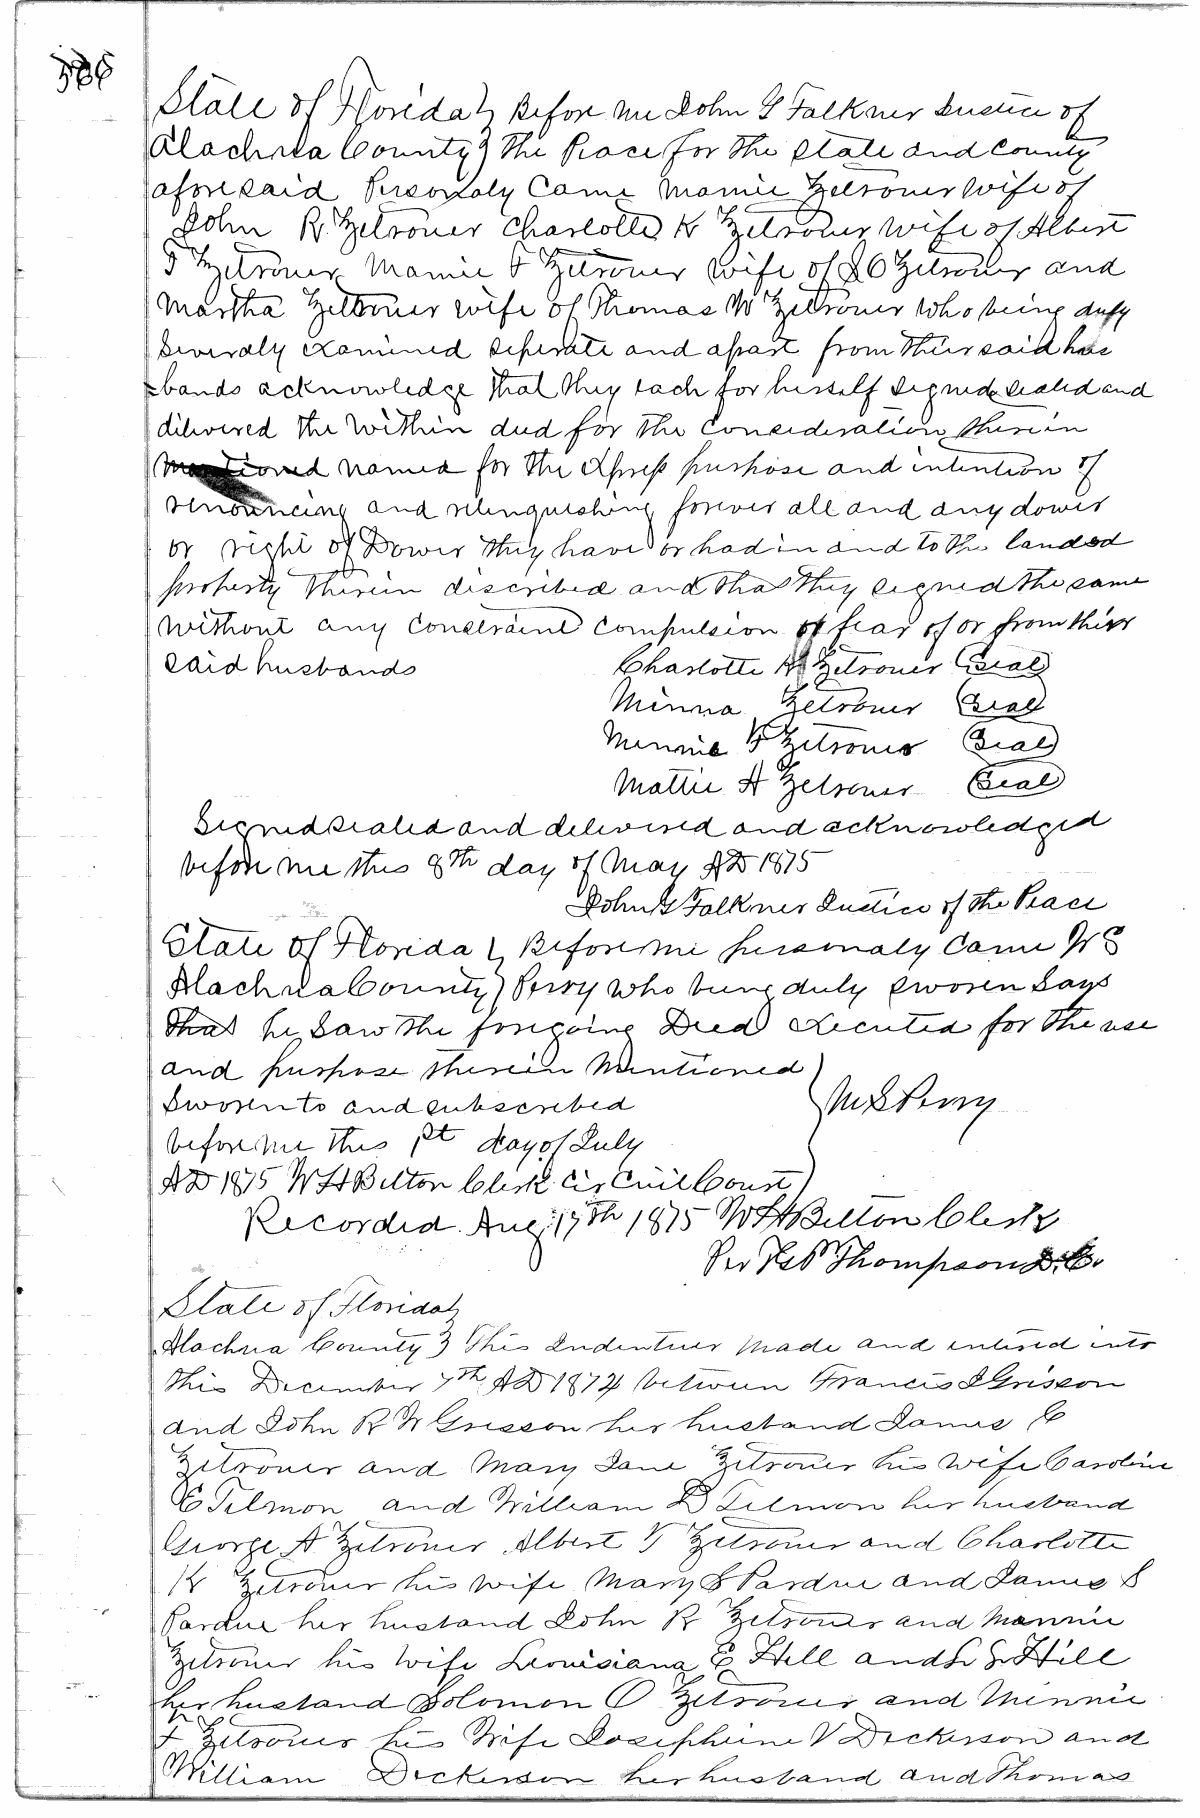 566
State of Florida } Before me John G Falkner Justice of
Alachua County } the Peace for the State and County
aforesaid Personaly Came Mamie Zetrouer wife of
John R. Zetrouer Charlotte K Zetrouer wife of Albert
F Zetrouer Mamie F Zetrouer wife of S O Zetrouer and
Martha Zetrouer wife of Thomas W Zetrouer who being duly
Severaly examined seperate and apart from their said hus
=bands acknowledge that they each for herself signed sealed and
delivered the within deed for the consideration therein
mentioned named for the express purpose and intention of
renouncing and relinquishing forever all and any dower
or right of Dower they have or had in and to the landed
property therein discribed and that they signed the same
without any constraint compulsion or fear of or from their
said husbands Charlotte K Zetrouer (Seal)
Minna Zetrouer (Seal)
Minnie F Zetrouer (Seal)
Mattie A Zetrouer (Seal)
Signed sealed and delivered and acknowledged
before me this 8th day of May AD 1875
John G Falkner Justice of the Peace
State of Florida } Before me personaly Came W S
Alachua County } Perry who being duly sworen Says
that he Saw the foregoing Deed executed for the use
and purpose therein mentioned
Sworen to and subscribed } W S Perry
before me this 1st day of July
AD 1875 W H Belton Clerk Cir Civil Court
Recorded Aug 17th 1875 W H Belton Clerk
Per Thompson D.C.
State of Florida }
Alachua County } This Indentuer made and entired into
this December 7th AD 1874 between Francis I Grisson
and John R W Grisson her husband James C
Zetrouer and Mary Jane Zetrouer his wife Caroline
E Tilmon and William D Tilmon her husband
George A Zetrouer Albert F Zetrouer and Charlotte
K Zetrouer his wife Mary S Pardue and James S
Pardue her husband John R Zetrouer and Mannie
Zetrouer his wife Louisiana E Hill and L G Hill
her husband Solomon O Zetrouer and Minnie
F Zetrouer his Wife Josephine V Dickerson and
William Dickerson her husband and Thomas